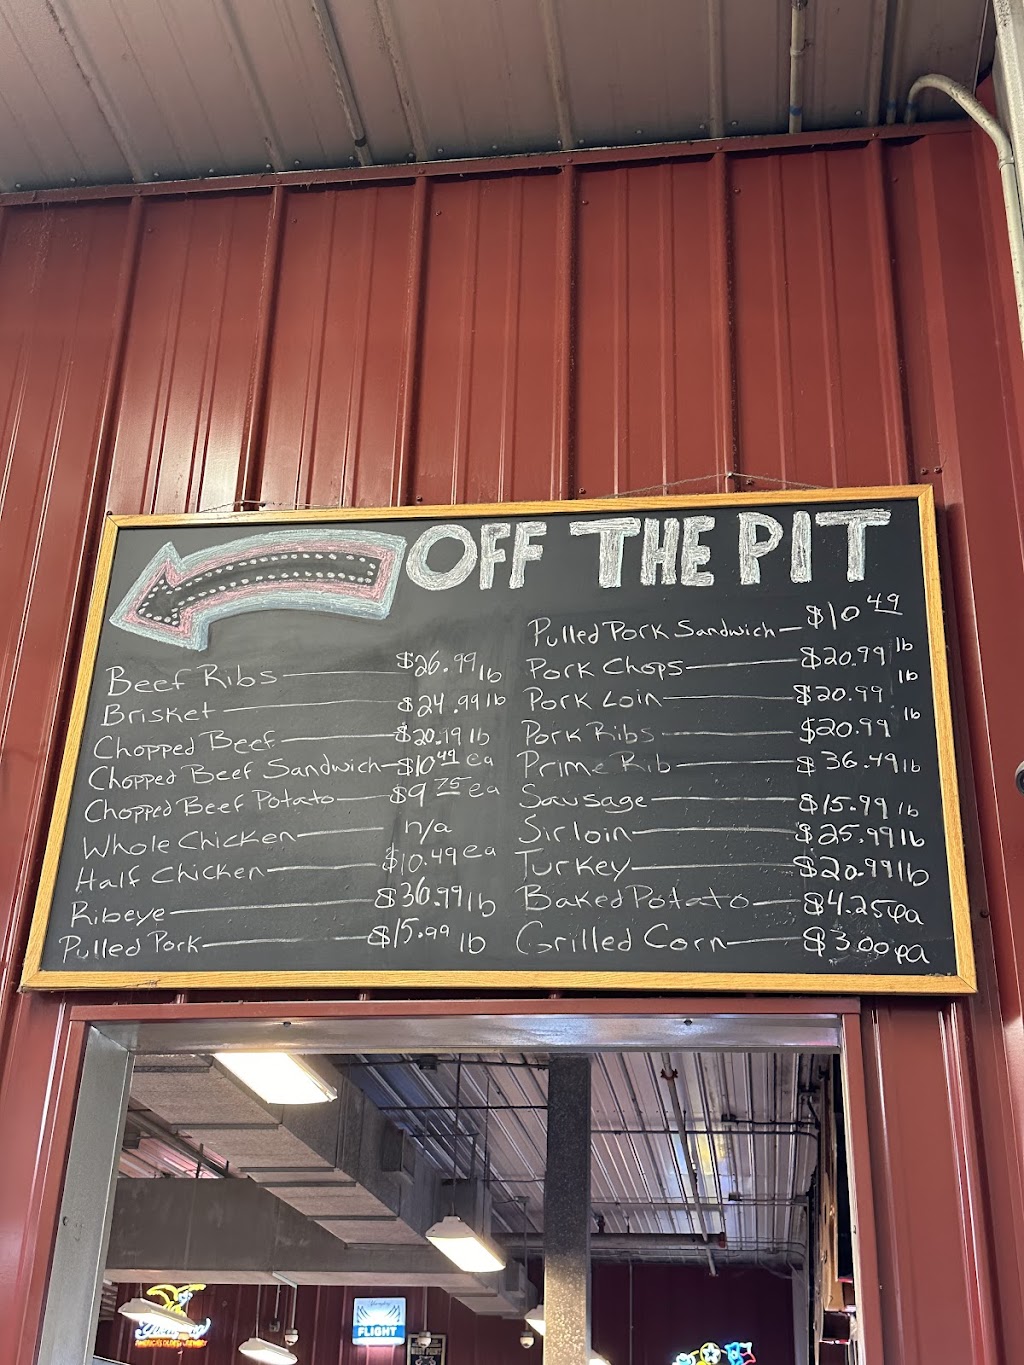 OFF THE PIT
Beef Ribs $26.99 lb
Brisket $24.99 lb
Chopped Beef $20.19 lb
Chopped Beef Sandwich $10.49 ea
Chopped Beef Potato $9.75 ea
Whole Chicken n/a
Half Chicken $10.49 ea
Ribeye lb
Pulled Pork $15.99 lb
Pulled Pork Sandwich $10.49
Pork Chops $20.99 lb
Pork Loin $20.99 lb
Pork Ribs $20.99 lb
Prime Rib $36.49 lb
Sausage $15.99 lb
Sirloin $25.99 lb
Turkey $20.99 lb
Baked Potato $4.25 ea
Grilled Corn $3.00 ea
Yuengling
AMERICA'S OLDEST BREWERY
Yuengling
FLIGHT
WEST POINT